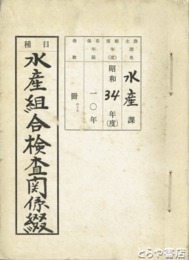 水産課
昭和34年(度)
一〇年
冊
種目
水産組合検査関係綴
とらや書店